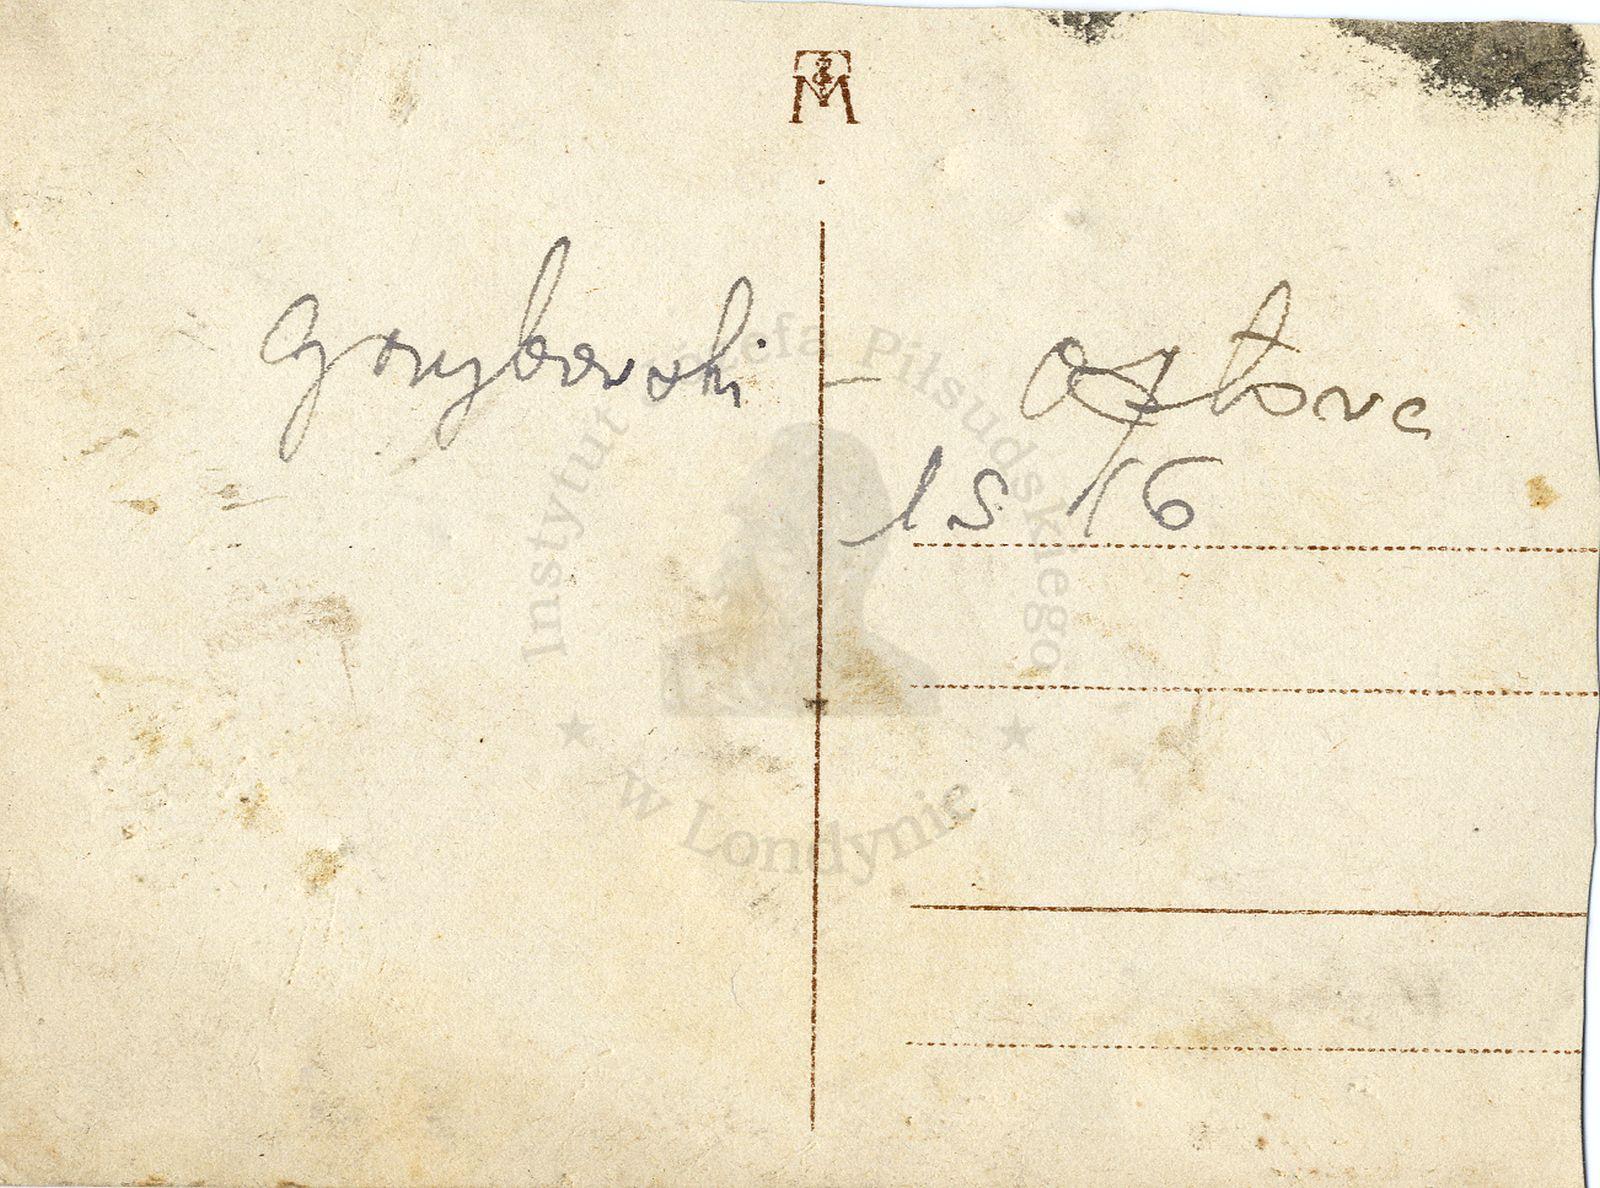 Grzybowski –
1916
Instytut Józefa Piłsudskiego
w Londynie
M